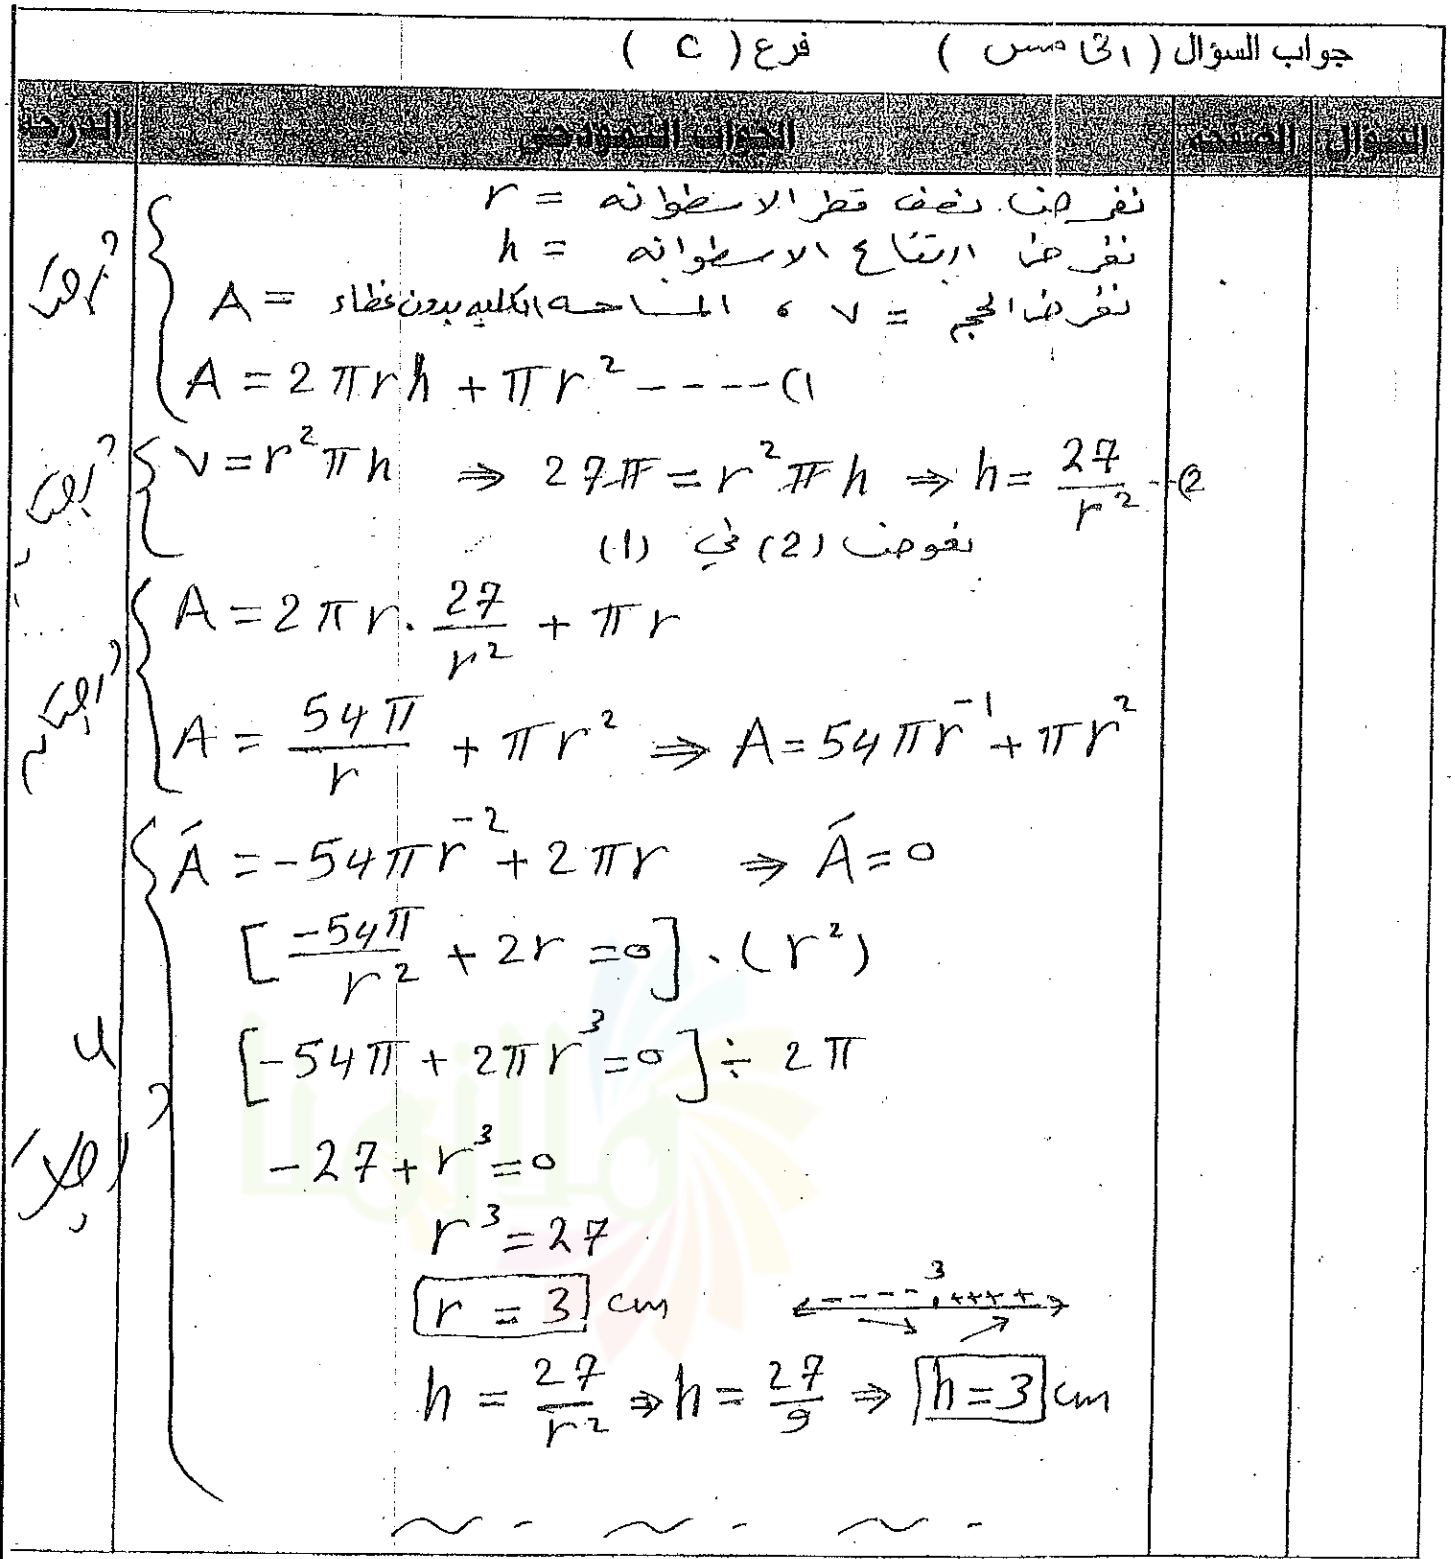 جواب السؤال ( الخامس ) فرع ( C )
السؤال الصفحة الجواب النموذجي الدرجة
نفرض نصف قطر الاسطوانه = r
نفرض ارتفاع الاسطوانه = h
نفرض الحجم = v ، المساحه الكليه بدون غطاء = A
A = 2πrh + πr² ----(1
v = r²πh ⇒ 27π = r²πh ⇒ h = 27/r² --(2
نعوض (2) في (1)
A = 2πr · 27/r² + πr
A = 54π/r + πr² ⇒ A = 54πr⁻¹ + πr²
Á = -54πr⁻² + 2πr ⇒ Á = 0
[-54π/r² + 2r = 0] · (r²)
[-54π + 2πr³ = 0] ÷ 2π
-27 + r³ = 0
r³ = 27
r = 3 cm
3
---- ++++
h = 27/r² ⇒ h = 27/9 ⇒ h = 3 cm
ملازمنا